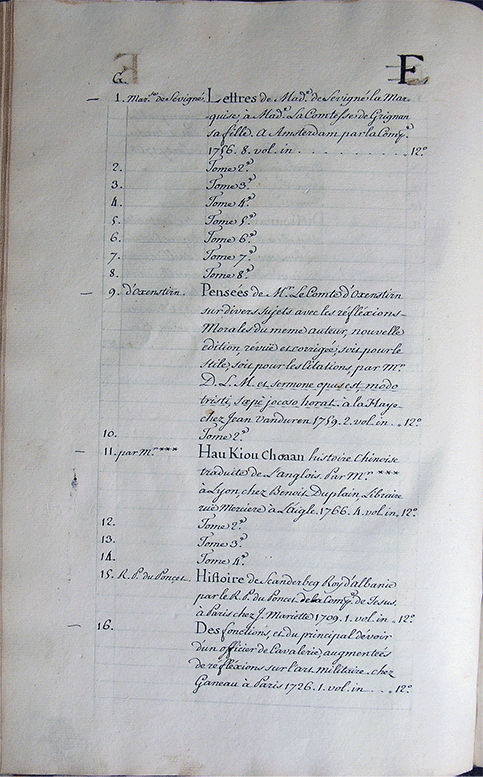 E.
G.
1. Mar.se de Sevigné. Lettres de Mad.e de Sevigné la Mar-
quise, à Mad.e La Comtesse de Grignan
sa fille. A Amsterdam par la Comp.e
1756. 8. vol. in . . . . . . . . . . . 12.º
2. Tome 2.e
3. Tome 3.e
4. Tome 4.e
5. Tome 5.e
6. Tome 6.e
7. Tome 7.e
8. Tome 8.e
9. d'Oxenstirn. Pensées de M.r Le Comte d'Oxenstirn
sur divers sujets avec les réfléxions
Morales du meme auteur, nouvelle
edition, révüe et corrigée, soit pour le
stile, soit pour les citations, par M.r
D. L. M. et sermone opus est, modo
tristi, sæpè jocoso horat. à la Haye
chez Jean Vanduren 1759. 2. vol. in . . 12.º
10. Tome 2.e
11. par M.r *** Hau Kiou Choaan histoire Chinoise
traduite de L'anglois. Par M.r ***
à Lyon, chez Benoit Duplain, Libraire
rüe Merciere à L'aigle. 1766. 4. vol. in. 12.º
12. Tome 2.e
13. Tome 3.e
14. Tome 4.e
15. R. P. du Poncet. Histoire de Scanderbeg Roy d'albanie
par le R. P. du Poncet de la Comp.e de Jesus.
à Paris chez J. Mariette 1709. 1. vol. in . . 12.º
16. Des fonctions et du principal devoir
d'un officier de Cavalerie, augmentées
de réfléxions sur l'art militaire. chez
Ganeau à Paris 1726. 1. vol. in . . . . 12.º